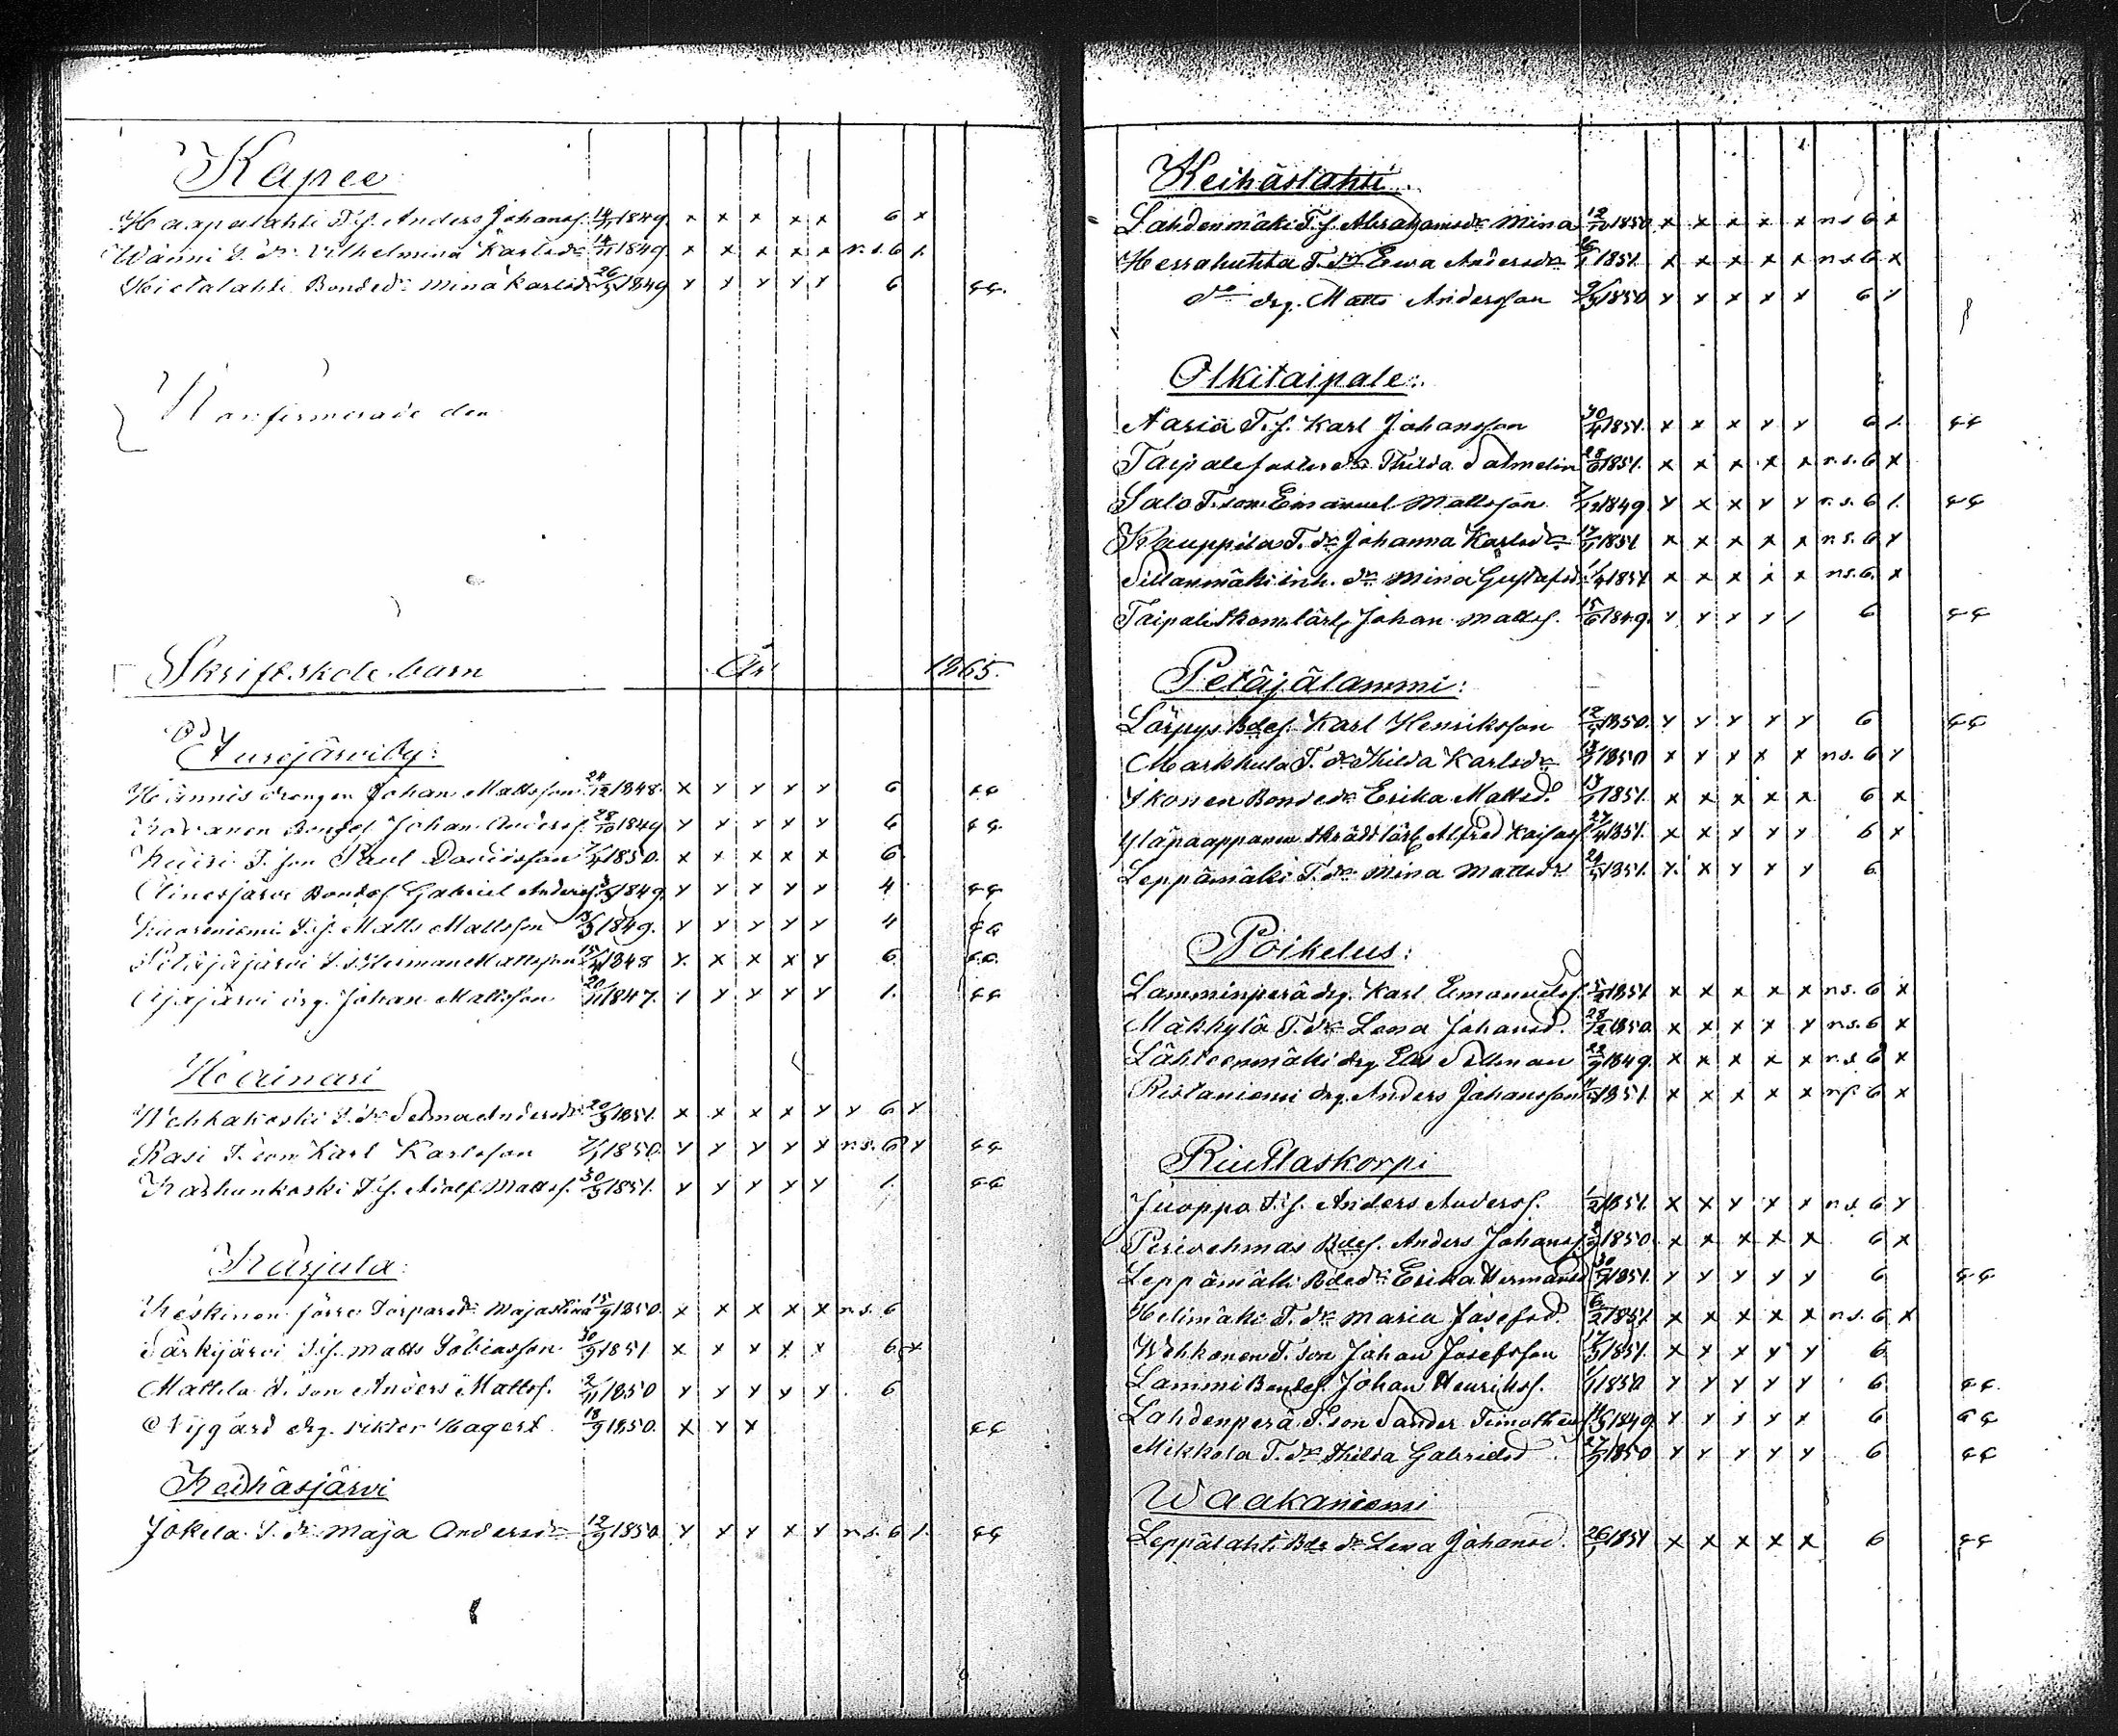 Kapee
Haapalahti T.s. Anders Johanss. 1849. x x x x x 6 x
Wänni T. dr Vilhelmina Karlsdr 1849. x x x x x n.s. 6 x
Hietalahti Bondedr Mina Karlsdr 26/3 1849 x x x x x 6
Konfirmerade den
Skriftskole barn År 1865.
Kurejärviby:
Hännis drengen Johan Mattsson 24/12 1848. x x x x x 6
Bondes. Johan Anderss. 28/10 1849 x x x x x 6
T. son Paul Davidsson 1850. x x x x x 6.
Bondes. Gabriel Anderss. 1849. x x x x x 4
Kuoreniemi T.s. Matts Mattsson 1849. x x x x x 4
Petäjäjärvi T.s. Herman Mattsson 15/4 1848 x x x x x 6
drg. Johan Mattsson 20/11 1847. x x x x x 1.
Heinäsi
Wehkakoski T. dr Selma Andersdr 20/3 1851. x x x x x x 6 x
Rasi T. son Karl Karlsson 1850. x x x x x n.s. 6 x
Karhunkoski T.s. Adolf Mattss. 30/3 1851. x x x x x 1.
Karjula:
Keskinen förre Torparedr Maja Stina 15/9 1850. x x x x x n.s. 6
Särkijärvi T.s. Matts Tobiasson 30/9 1851. x x x x x 6 x
Mattila T. son Anders Mattss. 2/11 1850 x x x x x 6
Nygård drg. Viktor Hagert 18/9 1850. x x x
Keihäsjärvi
Jokela T. dr Maja Andersdr 12/9 1850 x x x x x n.s. 6 1.
Keihäslahti.
Lahdenmäki T.f. Abrahamsdr Mina 12/10 1850 x x x x x n.s 6 x
Herrahuhta T. dr Ewa Andersdr 1851. x x x x x n.s 6 x
do drg. Matts Andersson 9/3 1850 x x x x x 6 x
Olkitaipale:
Naria T.s. Karl Johansson 30/4 1851. x x x x x 6 1.
Taipale fosterdr Thilda Salmelin 28/6 1851. x x x x x n.s. 6 x
Salo T. son Emanuel Mattsson 7/12 1849. x x x x x n.s. 6 1.
Kauppila T. dr Johanna Karlsdr 17/1 1851 x x x x x n.s. 6 x
Sillanmäki inh. dr Mina Gustafsd. 1851 x x x x x n.s. 6. x
Taipale Skom.lärl. Johan Mattss. 15/6 1849. x x x x / 6
Petäjälammi:
Lärpys Bdes. Karl Henriksson 1850. x x x x x 6
Markkula T. dr Thilda Karlsdr 1850 x x x x x n.s. 6 x
Ikonen Bondedr Erika Mattsd. 1851. x x x x x 6 x
Yläpaappanen Skräddlärl. Alfred Kaisass. 27/4 1851. x x x x x 6 x
Leppämäki T. dr Mina Mattsdr 1851. x x x x x 6
Poikelus:
Lamminperä drg. Karl Emanuelss. 1851 x x x x x n.s. 6 x
Mäkkylä T. dr Lena Johansd. 28/12 1850 x x x x x n.s. 6 x
Lähteenmäki drg. Elis Sillman 22/9 1849. x x x x x n.s 6 x
Ristaniemi drg. Anders Johansson 1851. x x x x x n.s. 6 x
Riuttaskorpi
Juoppo T.s. Anders Anderss. 1/2 1851. x x x x x n.s. 6 x
Perivehmas Bdes. Anders Johanss. 1850. x x x x x 6 x
Leppämäki Bdedr Erika Hermansd. 1851. x x x x x 6
Helimäki T. dr Maria Josefsd. 6/2 1851. x x x x x n.s. 6 x
Wehkonen T. son Johan Josefsson 1851. x x x x x 6
Lammi Bondes. Johan Henrikss. 1850 x x x x x 6
Lahdenperä T. son Sander Timotheuss. 1849 x x x x x 6
Mikkola T. dr Thilda Gabrielsd. 1850 x x x x x 6
Waakaniemi
Leppälahti Bde dr Lena Johansd. 26/1 1851 x x x x x 6